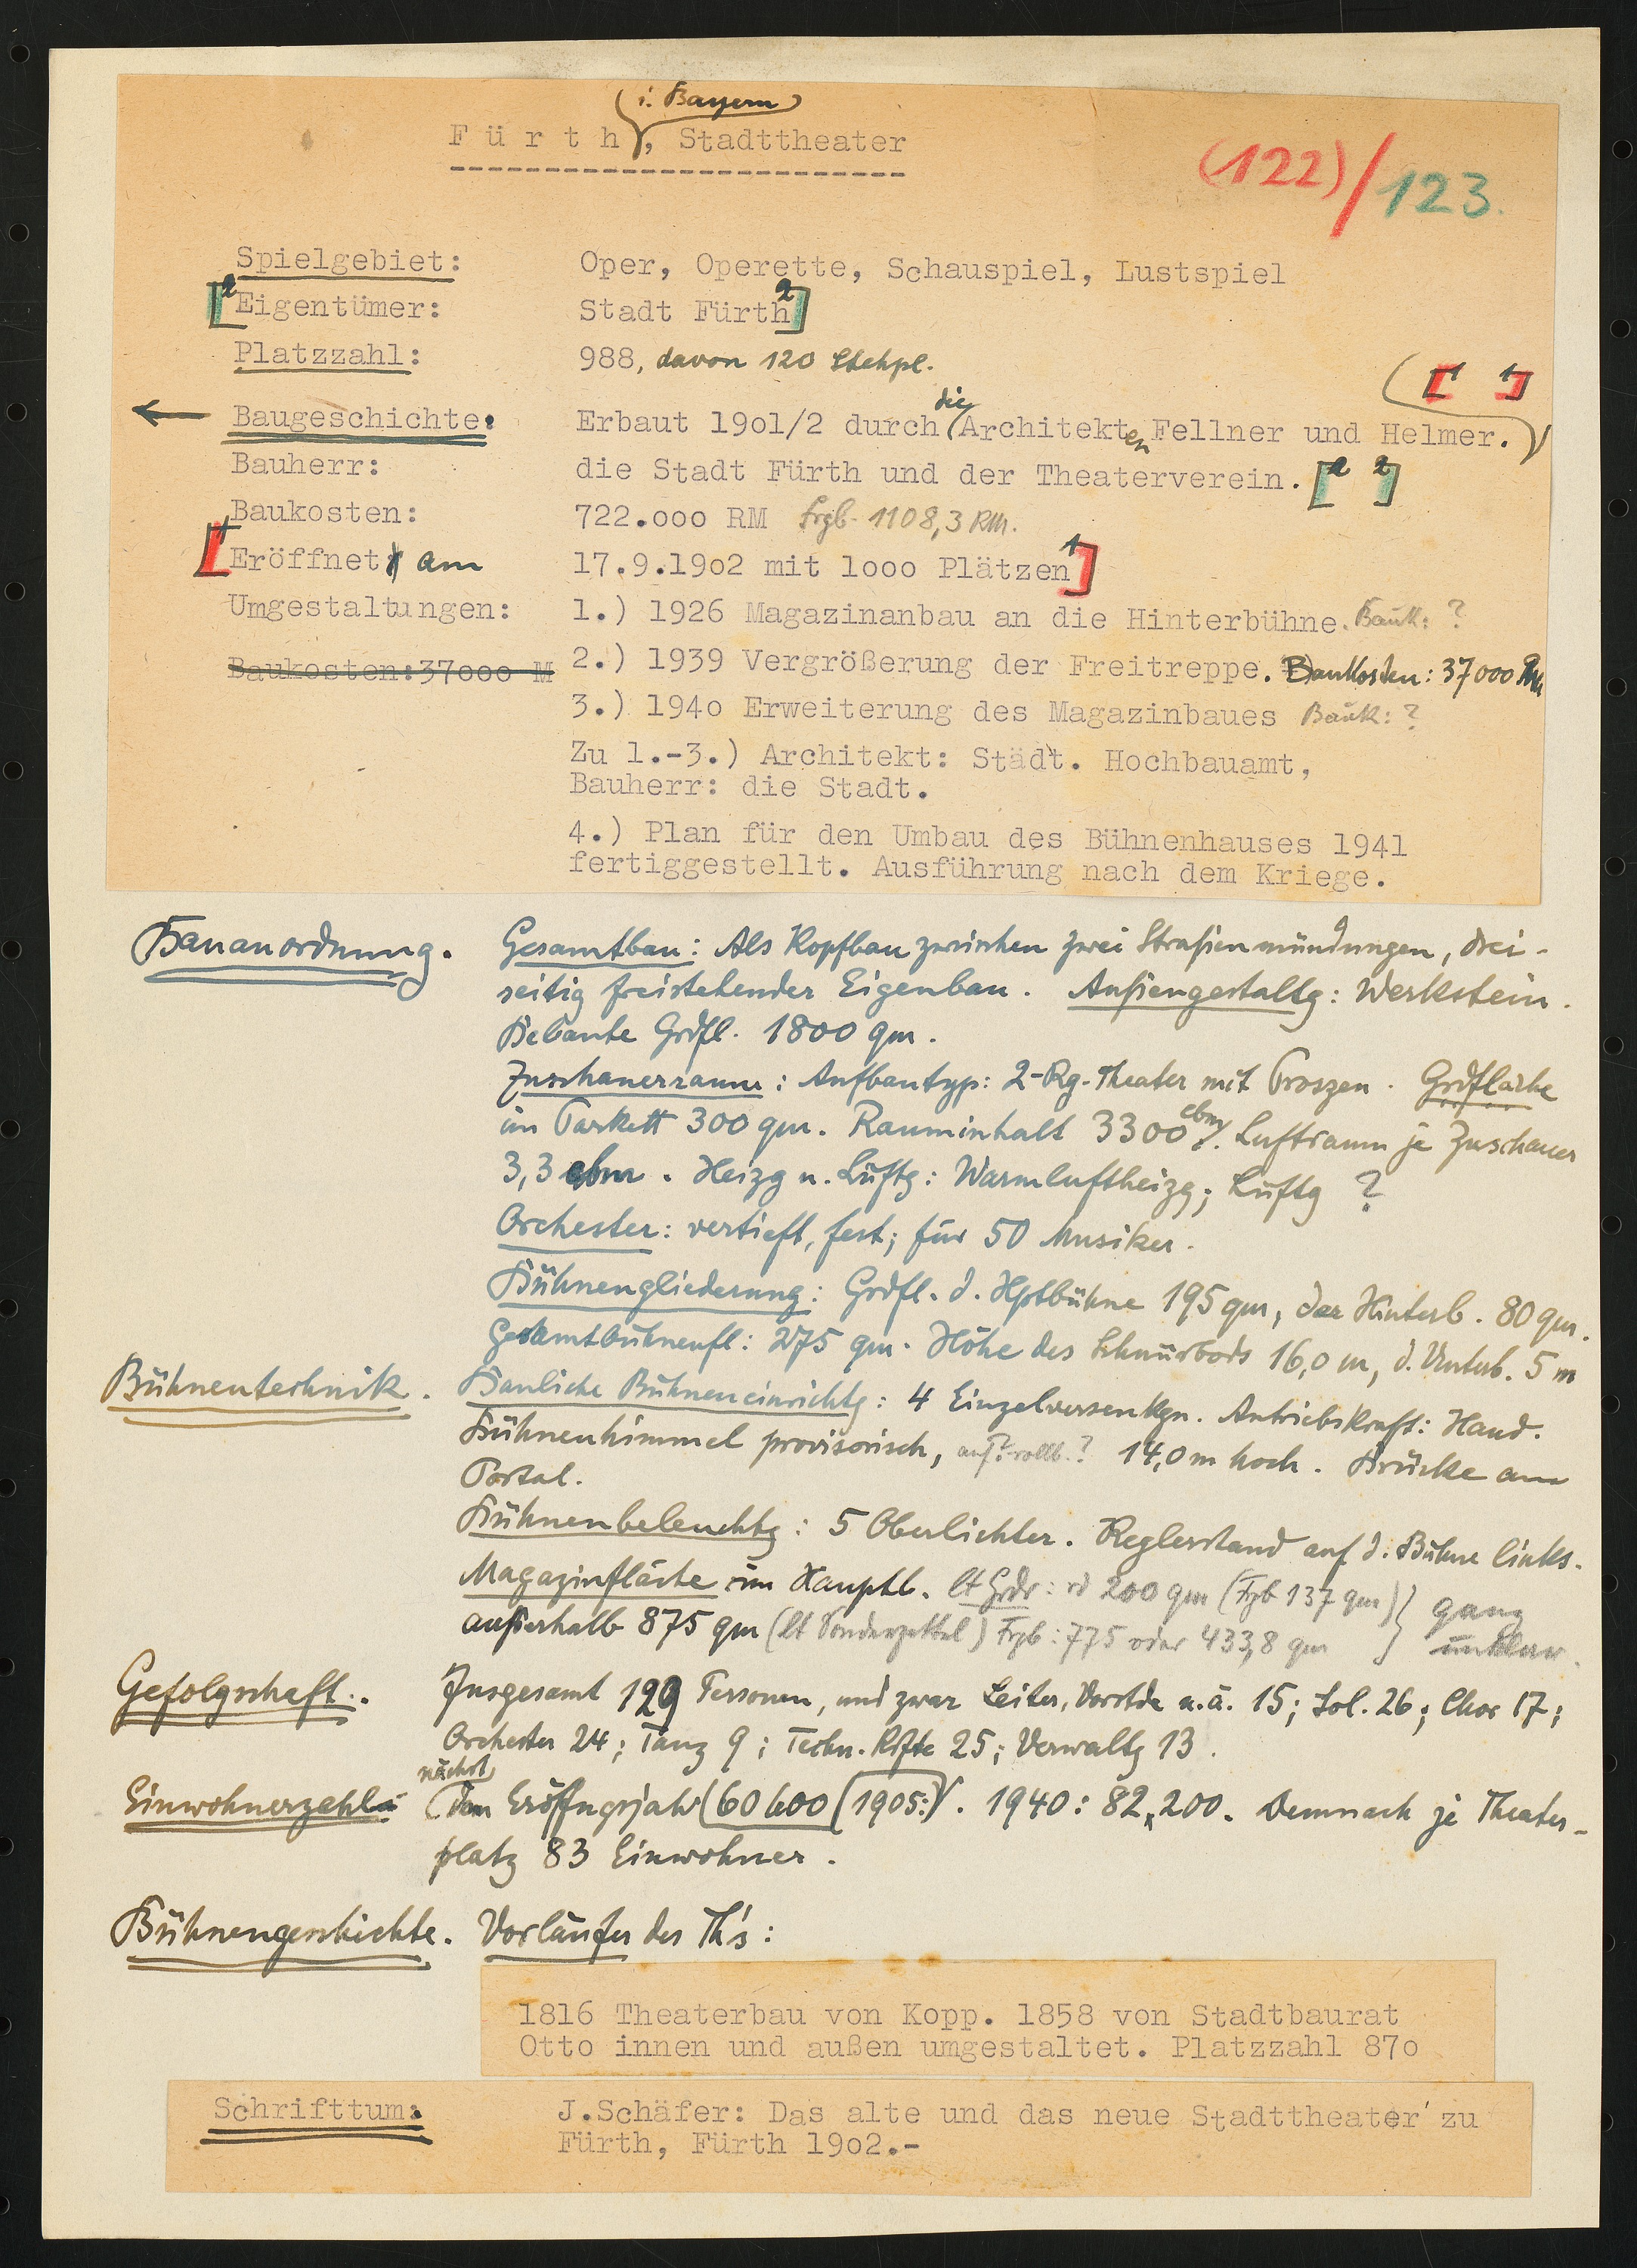 (i. Bayern)
Fürth, Stadttheater
(122)/123.
Spielgebiet: Oper, Operette, Schauspiel, Lustspiel
[2 Eigentümer: Stadt Fürth 2]
Platzzahl: 988, davon 120 Stehpl.
[1 1]
← Baugeschichte: Erbaut 19o1/2 durch die Architekten Fellner und Helmer.
Bauherr: die Stadt Fürth und der Theaterverein. [2 2]
Baukosten: 722.ooo RM Frgb. 1108,3 RM.
[1 Eröffnet: am 17.9.19o2 mit 1ooo Plätzen 1]
Umgestaltungen: 1.) 1926 Magazinanbau an die Hinterbühne. Bauk: ?
Baukosten:37ooo M 2.) 1939 Vergrößerung der Freitreppe. Baukosten: 37000 RM
3.) 194o Erweiterung des Magazinbaues Bauk: ?
Zu 1.-3.) Architekt: Städt. Hochbauamt,
Bauherr: die Stadt.
4.) Plan für den Umbau des Bühnenhauses 1941
fertiggestellt. Ausführung nach dem Kriege.
Bauanordnung. Gesamtbau: Als Kopfbau zwischen zwei Straßenmündungen, drei-
seitig freistehender Eigenbau. Außengestaltg: Werkstein.
Bebaute Grdfl. 1800 qm.
Zuschauerraum: Aufbautyp: 2-Rg-Theater mit Proszen. Grdfläche
im Parkett 300 qm. Rauminhalt 3300 cbm. Luftraum je Zuschauer
3,3 cbm. Heizg u. Lüftg: Warmluftheizg; Lüftg ?
Orchester: vertieft, fest; für 50 Musiker.
Bühnengliederung: Grdfl. d. Hptbühne 195 qm, der Hinterb. 80 qm.
Gesamtbühnenfl: 275 qm. Höhe des Schnürbods 16,0 m, d. Unterb. 5 m
Bühnentechnik. Bauliche Bühneneinrichtg: 4 Einzelversenkgn. Antriebskraft: Hand.
Bühnenhimmel provisorisch, auf?-rollb.? 14,0 m hoch. Brücke am
Portal.
Bühnenbeleuchtg: 5 Oberlichter. Reglerstand auf d. Bühne links.
Magazinfläche im Hauptb. lt Grdr: rd 200 qm (Frgb 137 qm) } ganz
außerhalb 875 qm (lt Sonderzettel) Frgb: 775 oder 433,8 qm } unklar.
Gefolgschaft. Insgesamt 129 Personen, und zwar Leiter, Vorstde u.ä. 15; Sol. 26; Chor 17;
Orchester 24; Tanz 9; Techn. Kräfte 25; Verwaltg 13.
nächst
Einwohnerzahl: Dem Eröffngsjahr (60600 (1905:). 1940: 82,200. Demnach je Theater-
platz 83 Einwohner.
Bühnengeschichte. Vorläufer des Th's:
1816 Theaterbau von Kopp. 1858 von Stadtbaurat
Otto innen und außen umgestaltet. Platzzahl 87o
Schrifttum: J.Schäfer: Das alte und das neue Stadttheater zu
Fürth, Fürth 19o2.-